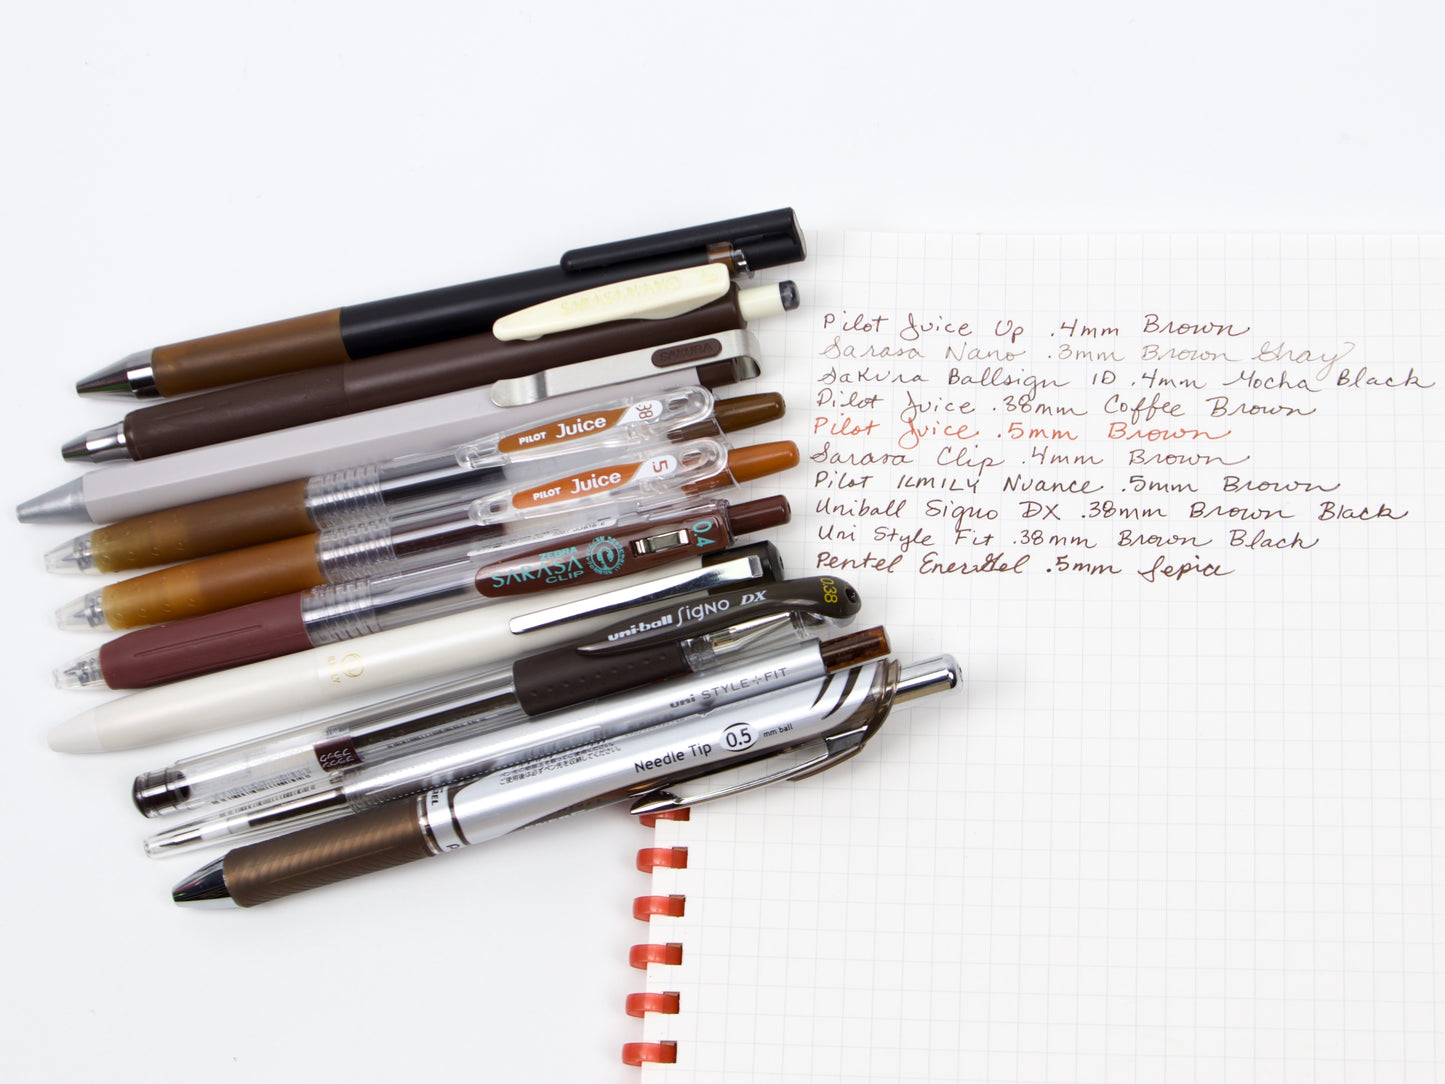 SARASA NANO
SAKURA
PILOT Juice 38
PILOT Juice 5
ZEBRA
SARASA
CLIP
0.4
uni-ball SigNO DX 0.38
uni STYLE+FIT
Needle Tip 0.5 mm ball
GEL
Pilot Juice Up .4mm Brown
Sarasa Nano .3mm Brown Gray
Sakura Ballsign ID .4mm Mocha Black
Pilot Juice .38mm Coffee Brown
Pilot Juice .5mm Brown
Sarasa Clip .4mm Brown
Pilot ILMILY Nuance .5mm Brown
Uniball Signo DX .38mm Brown Black
Uni Style Fit .38mm Brown Black
Pentel EnerGel .5mm Sepia